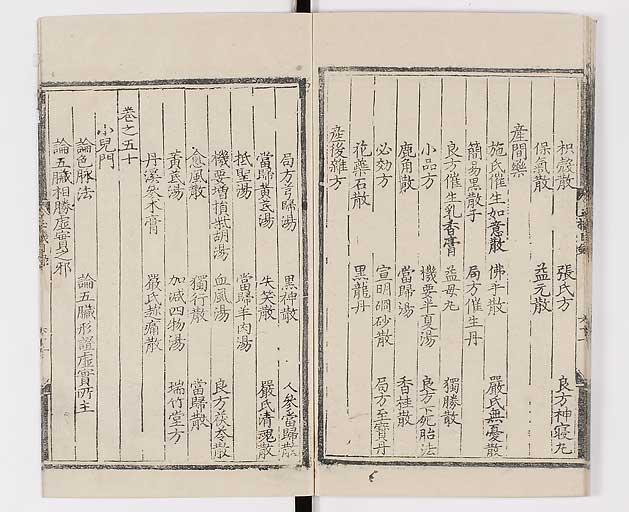 枳殼散 張氏方 良方神寢丸
保氣散 益元散
產間藥
施氏催生如意散 佛手散 嚴氏無憂散
簡易黑散子 局方催生丹
良方催生乳香膏 益母丸 獨勝散
小品方 機要半夏湯 良方下死胎法
鹿角散 當歸湯 香桂散
必効方 宣明硇砂散 局方至寶丹
花藥石散 黑龍丹
產後雜方
局方當歸湯 黑神散 人參當歸散
當歸黃芪湯 失笑散 嚴氏清魂散
抵聖湯 當歸羊肉湯
機要增損柴胡湯 血風湯 良方茯苓散
愈風散 獨行散 當歸散
黃芪湯 加減四物湯 瑞竹堂方
丹溪參朮膏 嚴氏趁痛散
卷之五十
小兒門
論色脉法 論五臟形證虛實所主
論五臟相勝虛實之邪